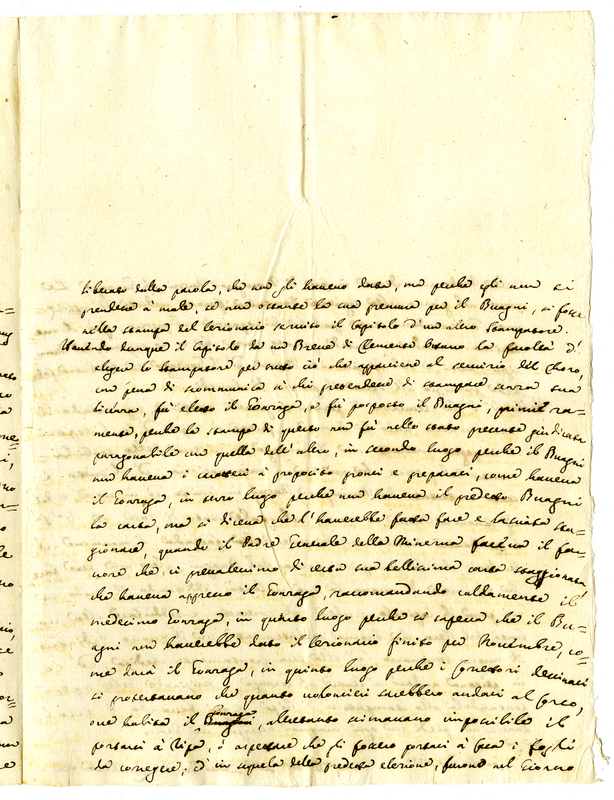 liberato dalla parola, che non gli haveva data, ma perche egli non si
prendesse à male, se non ostante la sua premura per il Buagni, si fosse
nella stampa del lezionario servito il Capitolo d'un altro Stampatore.
Havendo dunque il Capitolo da un Breve di Clemente Ottavo la facoltà d'
eleger lo Stampatore per tutto ciò che appartiene al servizio del Choro,
con pena di scommunica à chi pretendesse di stampare senza sua
licenza, fù eletto il Gonzaga, e fù posposto il Buagni, primiera-
mente, perche la stampa di questo non fù nello stato presente giudicata
paragonabile con quella dell'altro, in secondo luogo perche il Buagni
non haveva i caratteri à proposito pronti e preparati, come haveva
il Gonzaga, in terzo luogo perche non haveva il predetto Buagni
la carta, ma si diceva che l'haverebbe fatta fare e lasciata sta-
gionare, quando il Padre Generale della Minerva faceva il fa-
vore che ci prevalessimo di certa sua bellissima carta staggionata
che haveva appresso il Gonzaga, raccomandando caldamente il
medesimo Gonzaga, in quarto luogo perche si sapeva che il Bu-
agni non haverebbe dato il lezionario finito per Novembre, co-
me darà il Gonzaga, in quinto luogo perche i Correttori destinati
si protestavano che quanto volontieri sarebbero andati al Corso,
ove habita il Gonzaga, altrettanto stimavano impossibile il
portarsi à Ripa, ò aspettare che si fossero portati à Casa i fogli
da correggere; d' in sequela della predetta elezione, furono nel Giorno